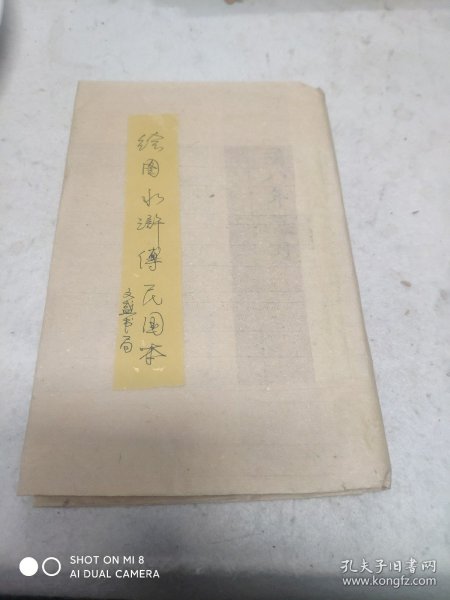 绘图水浒傳民国本
文盛书局
SHOT ON MI 8
AI DUAL CAMERA
孔夫子旧书网
www.kongfz.com